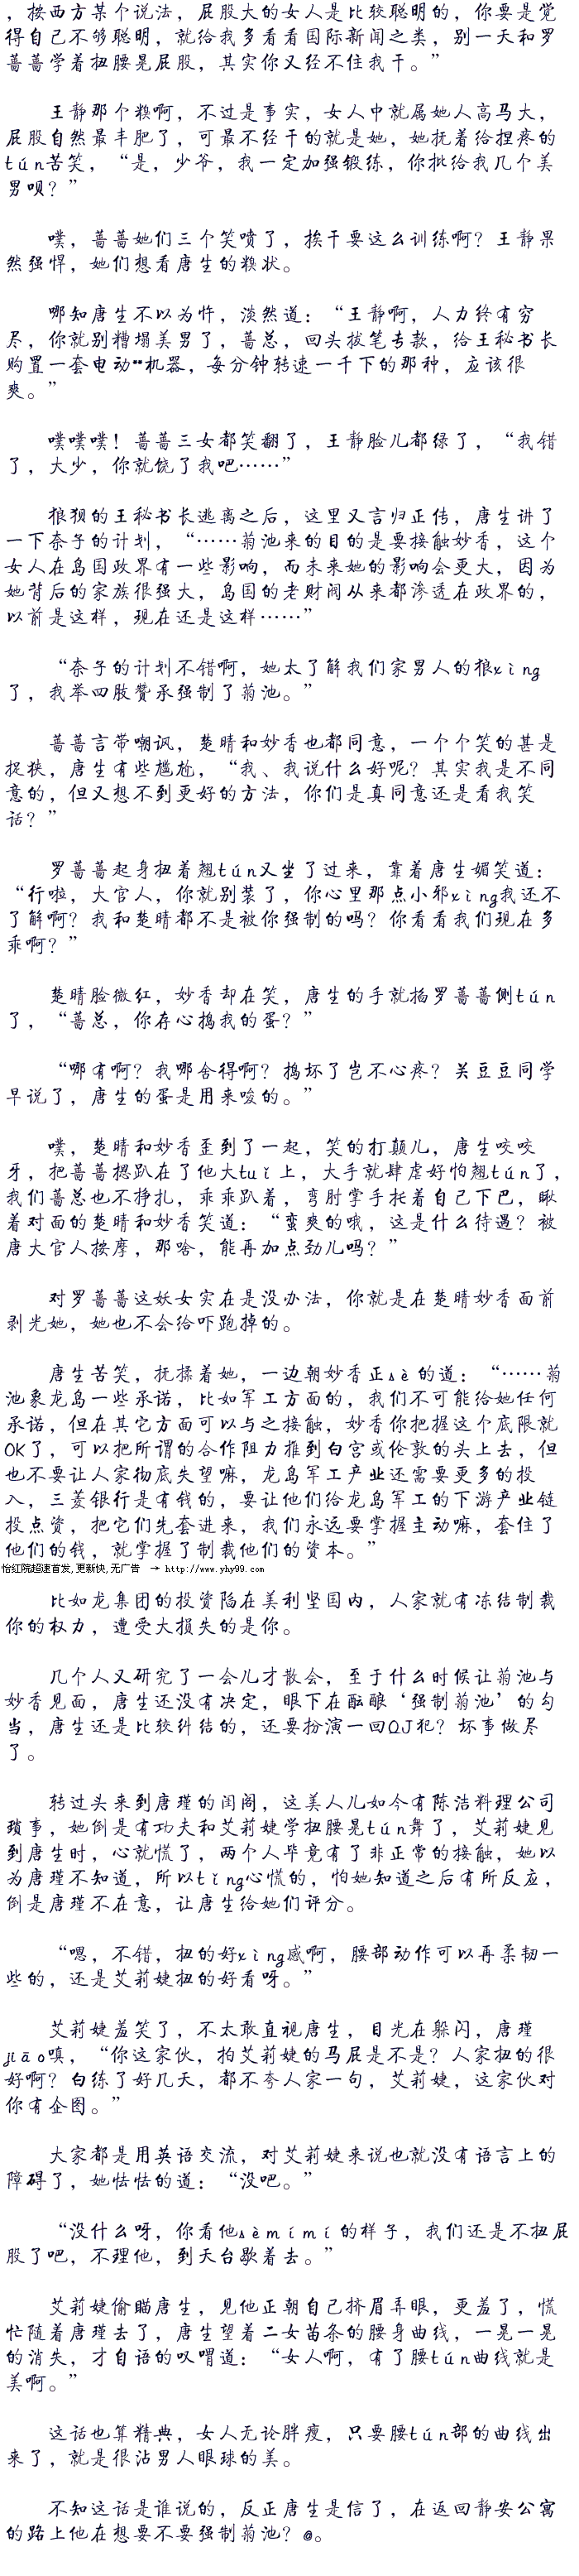 ，按西方某个说法，屁股大的女人是比较聪明的，你要是觉
得自己不够聪明，就给我多看看国际新闻之类，别一天和罗
蔷蔷学着扭腰晃屁股，其实你又经不住我干。”
王静那个糗啊，不过是事实，女人中就属她人高马大，
屁股自然最丰肥了，可最不经干的就是她，她抚着给捏疼的
tún苦笑，“是，少爷，我一定加强锻练，你批给我几个美
男呗？”
噗，蔷蔷她们三个笑喷了，挨干要这么训练啊？王静果
然强悍，她们想看唐生的糗状。
哪知唐生不以为忤，淡然道：“王静啊，人力终有穷
尽，你就别糟塌美男了，蔷总，回头拔笔专款，给王秘书长
购置一套电动**机器，每分钟转速一千下的那种，应该很
爽。”
噗噗噗！蔷蔷三女都笑翻了，王静脸儿都绿了，“我错
了，大少，你就饶了我吧……”
狼狈的王秘书长逃离之后，这里又言归正传，唐生讲了
一下奈子的计划，“……菊池来的目的是要接触妙香，这个
女人在岛国政界有一些影响，而未来她的影响会更大，因为
她背后的家族很强大，岛国的老财阀从来都渗透在政界的，
以前是这样，现在还是这样……”
“奈子的计划不错啊，她太了解我们家男人的狼xìng
了，我举四肢赞承强制了菊池。”
蔷蔷言带嘲讽，楚晴和妙香也都同意，一个个笑的甚是
捉狭，唐生有些尴尬，“我、我说什么好呢？其实我是不同
意的，但又想不到更好的方法，你们是真同意还是看我笑
话？”
罗蔷蔷起身扭着翘tún又坐了过来，靠着唐生媚笑道：
“行啦，大官人，你就别装了，你心里那点小邪xìng我还不
了解啊？我和楚晴都不是被你强制的吗？你看看我们现在多
乖啊？”
楚晴脸微红，妙香却在笑，唐生的手就掐罗蔷蔷侧tún
了，“蔷总，你存心捣我的蛋？”
“哪有啊？我哪舍得啊？捣坏了岂不心疼？关豆豆同学
早说了，唐生的蛋是用来唆的。”
噗，楚晴和妙香歪到了一起，笑的打颠儿，唐生咬咬
牙，把蔷蔷摁趴在了他大tuǐ上，大手就肆虐好怕翘tún了，
我们蔷总也不挣扎，乖乖趴着，弯肘掌手托着自己下巴，瞅
着对面的楚晴和妙香笑道：“蛮爽的哦，这是什么待遇？被
唐大官人按摩，那啥，能再加点劲儿吗？”
对罗蔷蔷这妖女实在是没办法，你就是在楚晴妙香面前
剥光她，她也不会给吓跑掉的。
唐生苦笑，抚揉着她，一边朝妙香正sè的道：“……菊
池象龙岛一些承诺，比如军工方面的，我们不可能给她任何
承诺，但在其它方面可以与之接触，妙香你把握这个底限就
OK了，可以把所谓的合作阻力推到白宫或伦敦的头上去，但
也不要让人家彻底失望嘛，龙岛军工产业还需要更多的投
入，三菱银行是有钱的，要让他们给龙岛军工的下游产业链
投点资，把它们先套进来，我们永远要掌握主动嘛，套住了
他们的钱，就掌握了制裁他们的资本。”
怡红院超速首发,更新快,无广告 → http://www.yhy99.com
比如龙集团的投资陷在美利坚国内，人家就有冻结制裁
你的权力，遭受大损失的是你。
几个人又研究了一会儿才散会，至于什么时候让菊池与
妙香见面，唐生还没有决定，眼下在酝酿‘强制菊池’的勾
当，唐生还是比较纠结的，还要扮演一回QJ犯？坏事做尽
了。
转过头来到唐瑾的闺阁，这美人儿如今有陈洁料理公司
琐事，她倒是有功夫和艾莉婕学扭腰晃tún舞了，艾莉婕见
到唐生时，心就慌了，两个人毕竟有了非正常的接触，她以
为唐瑾不知道，所以tǐng心慌的，怕她知道之后有所反应，
倒是唐瑾不在意，让唐生给她们评分。
“嗯，不错，扭的好xìng感啊，腰部动作可以再柔韧一
些的，还是艾莉婕扭的好看呀。”
艾莉婕羞笑了，不太敢直视唐生，目光在躲闪，唐瑾
jiāo嗔，“你这家伙，拍艾莉婕的马屁是不是？人家扭的很
好啊？白练了好几天，都不夸人家一句，艾莉婕，这家伙对
你有企图。”
大家都是用英语交流，对艾莉婕来说也就没有语言上的
障碍了，她怯怯的道：“没吧。”
“没什么呀，你看他sèmímí的样子，我们还是不扭屁
股了吧，不理他，到天台歇着去。”
艾莉婕偷瞄唐生，见他正朝自己挤眉弄眼，更羞了，慌
忙随着唐瑾去了，唐生望着二女苗条的腰身曲线，一晃一晃
的消失，才自语的叹喟道：“女人啊，有了腰tún曲线就是
美啊。”
这话也算精典，女人无论胖瘦，只要腰tún部的曲线出
来了，就是很沾男人眼球的美。
不知这话是谁说的，反正唐生是信了，在返回静安公寓
的路上他在想要不要强制菊池？@。